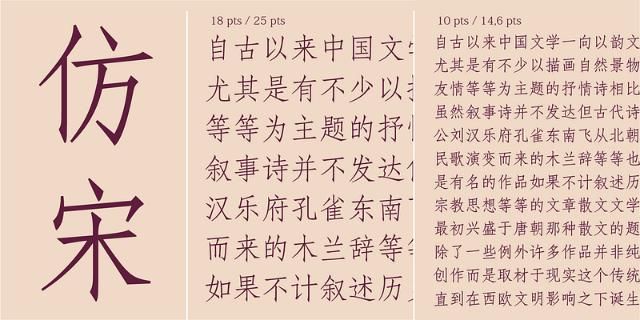 仿
宋
18 pts / 25 pts
自古以来中国文
尤其是有不少以
等等为主题的抒
叙事诗并不发达
汉乐府孔雀东南
而来的木兰辞等
如果不计叙述历
10 pts / 14,6 pts
自古以来中国文学一向以韵文
尤其是有不少以描画自然景物
友情等等为主题的抒情诗相比
虽然叙事诗并不发达但古代诗
公刘汉乐府孔雀东南飞从北朝
民歌演变而来的木兰辞等等也
是有名的作品如果不计叙述历
宗教思想等等的文章散文文学
最初兴盛于唐朝那种散文的题
除了一些例外许多作品并非纯
创作而是取材于现实这个传统
直到在西欧文明影响之下诞生